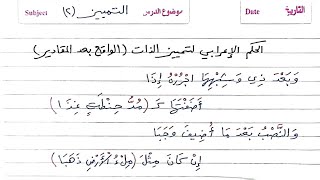 التاريخ Date موضوع الدرس التمييز (٢) Subject
الحكم الإعرابي لتمييز الذات (الواقع بعد المقادير)
وَبَعْدَ ذِي وَشِبْهِهَا اجْرُرْهُ إِذَا
أَضَفْتَهَا كَـ (مُدُّ حِنْطَةٍ غِذَا)
وَالنَّصْبُ بَعْدَ مَا أُضِيفَ وَجَبَا
إِنْ كَانَ مِثْلَ (مِلْءُ الْأَرْضِ ذَهَبَا)